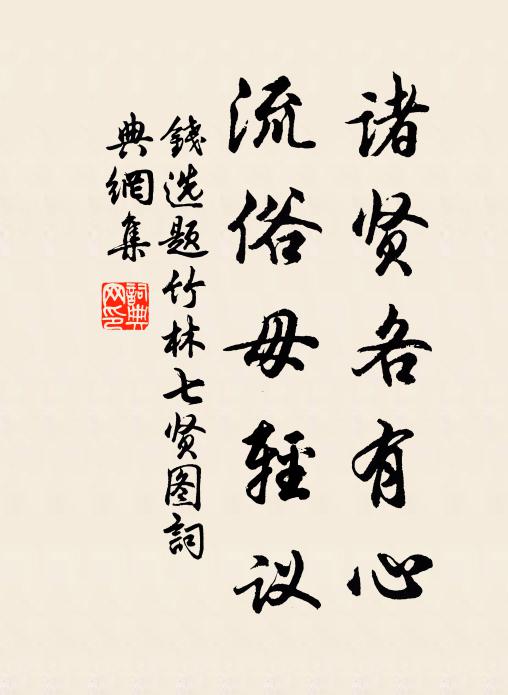 诸贤各有心
流俗毋轻议
錢选题竹林七贤图詞
典網集
詞典网印